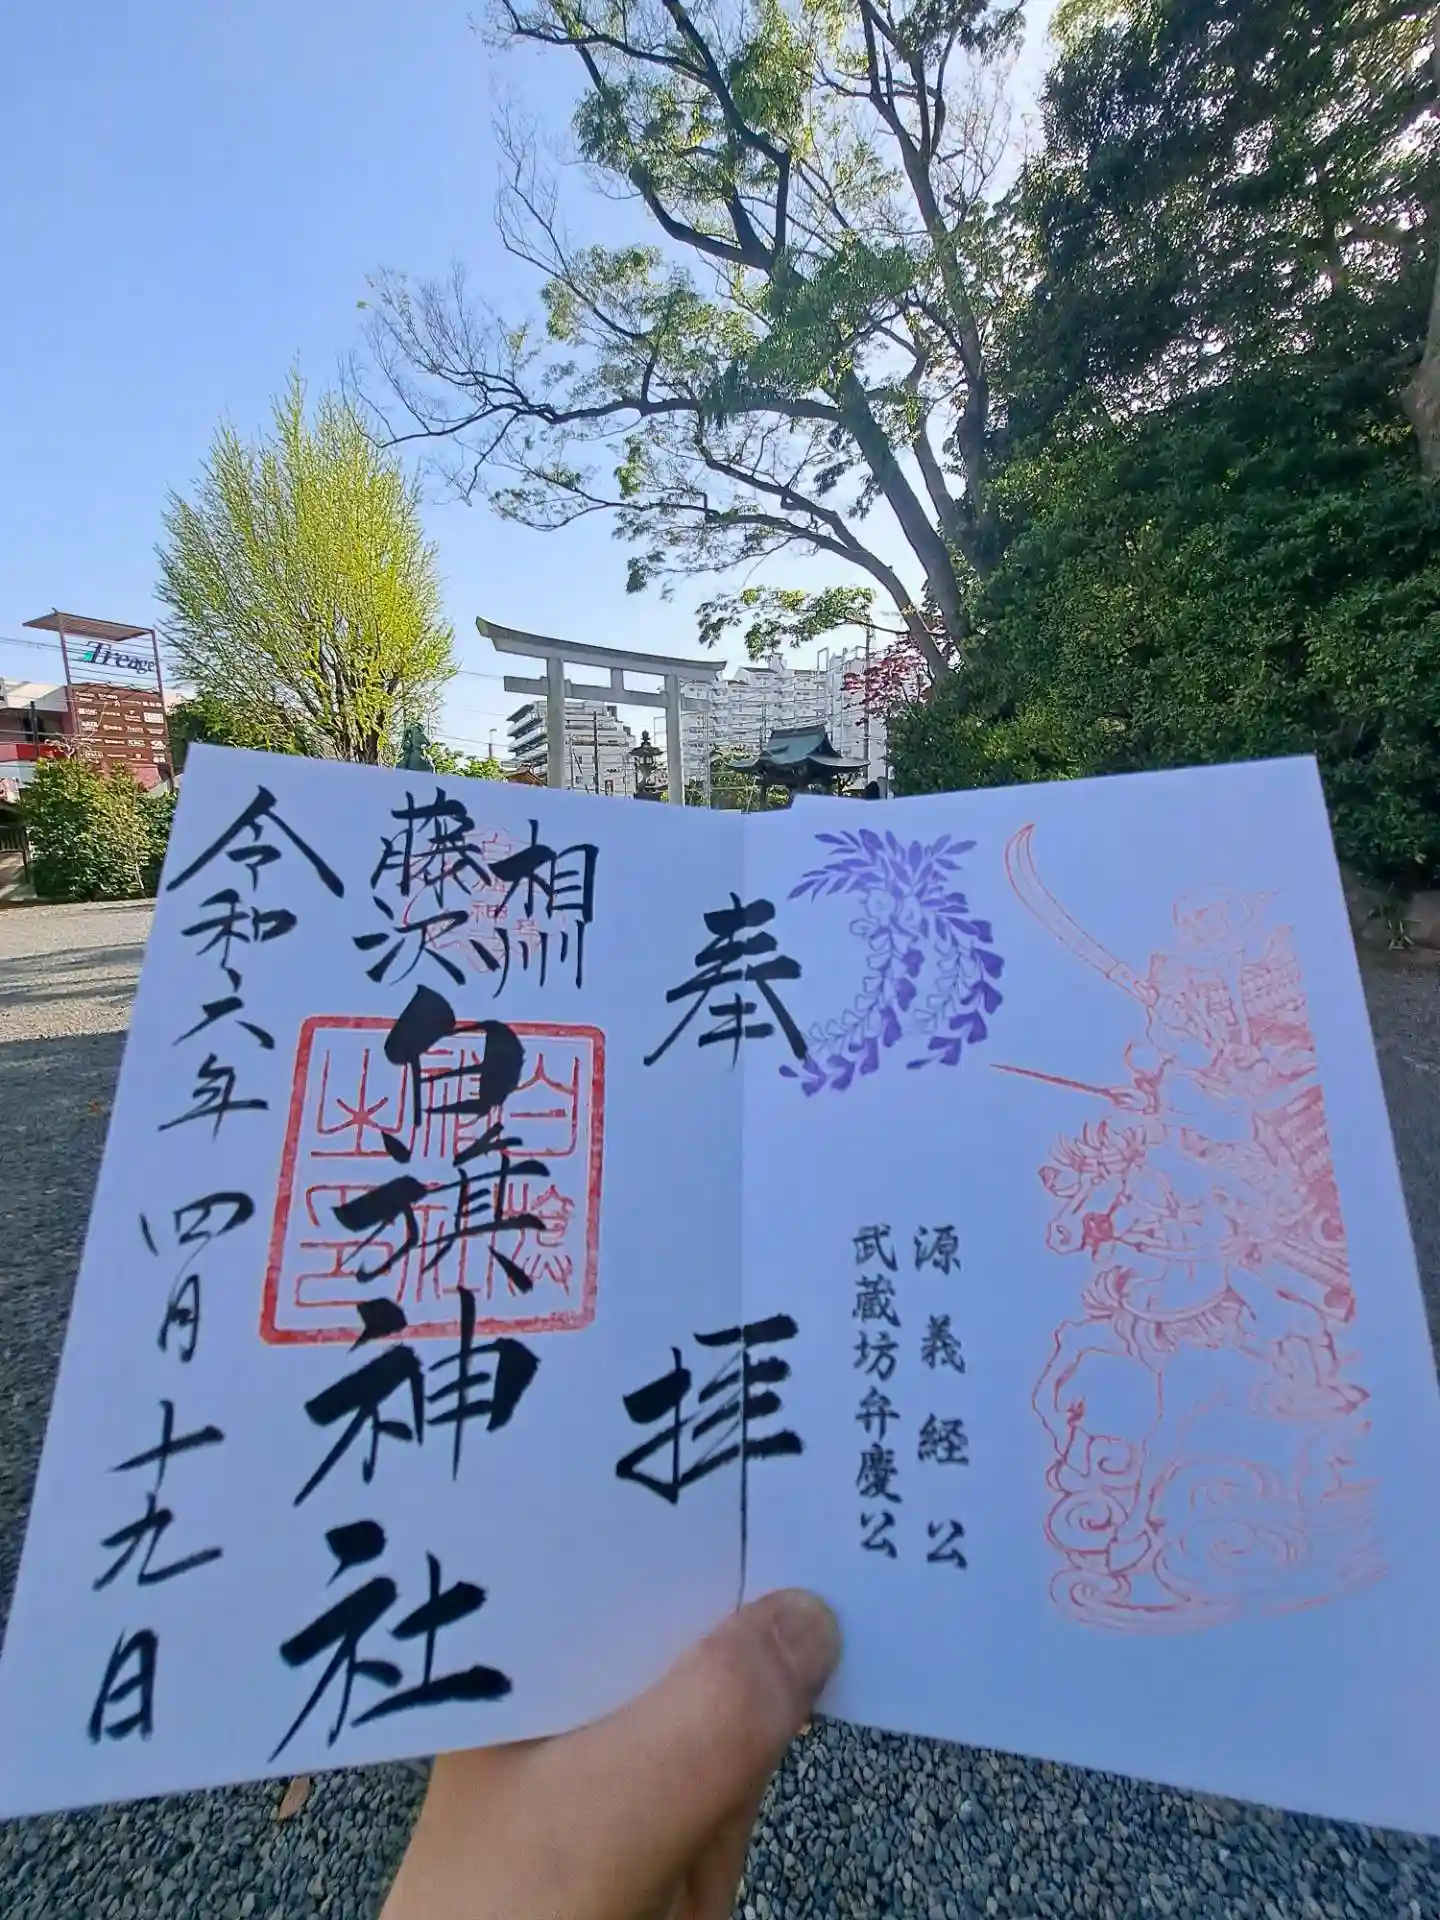 奉拝
相州
藤沢
白旗神社
令和六年四月十九日
源義経公
武蔵坊弁慶公
Treage